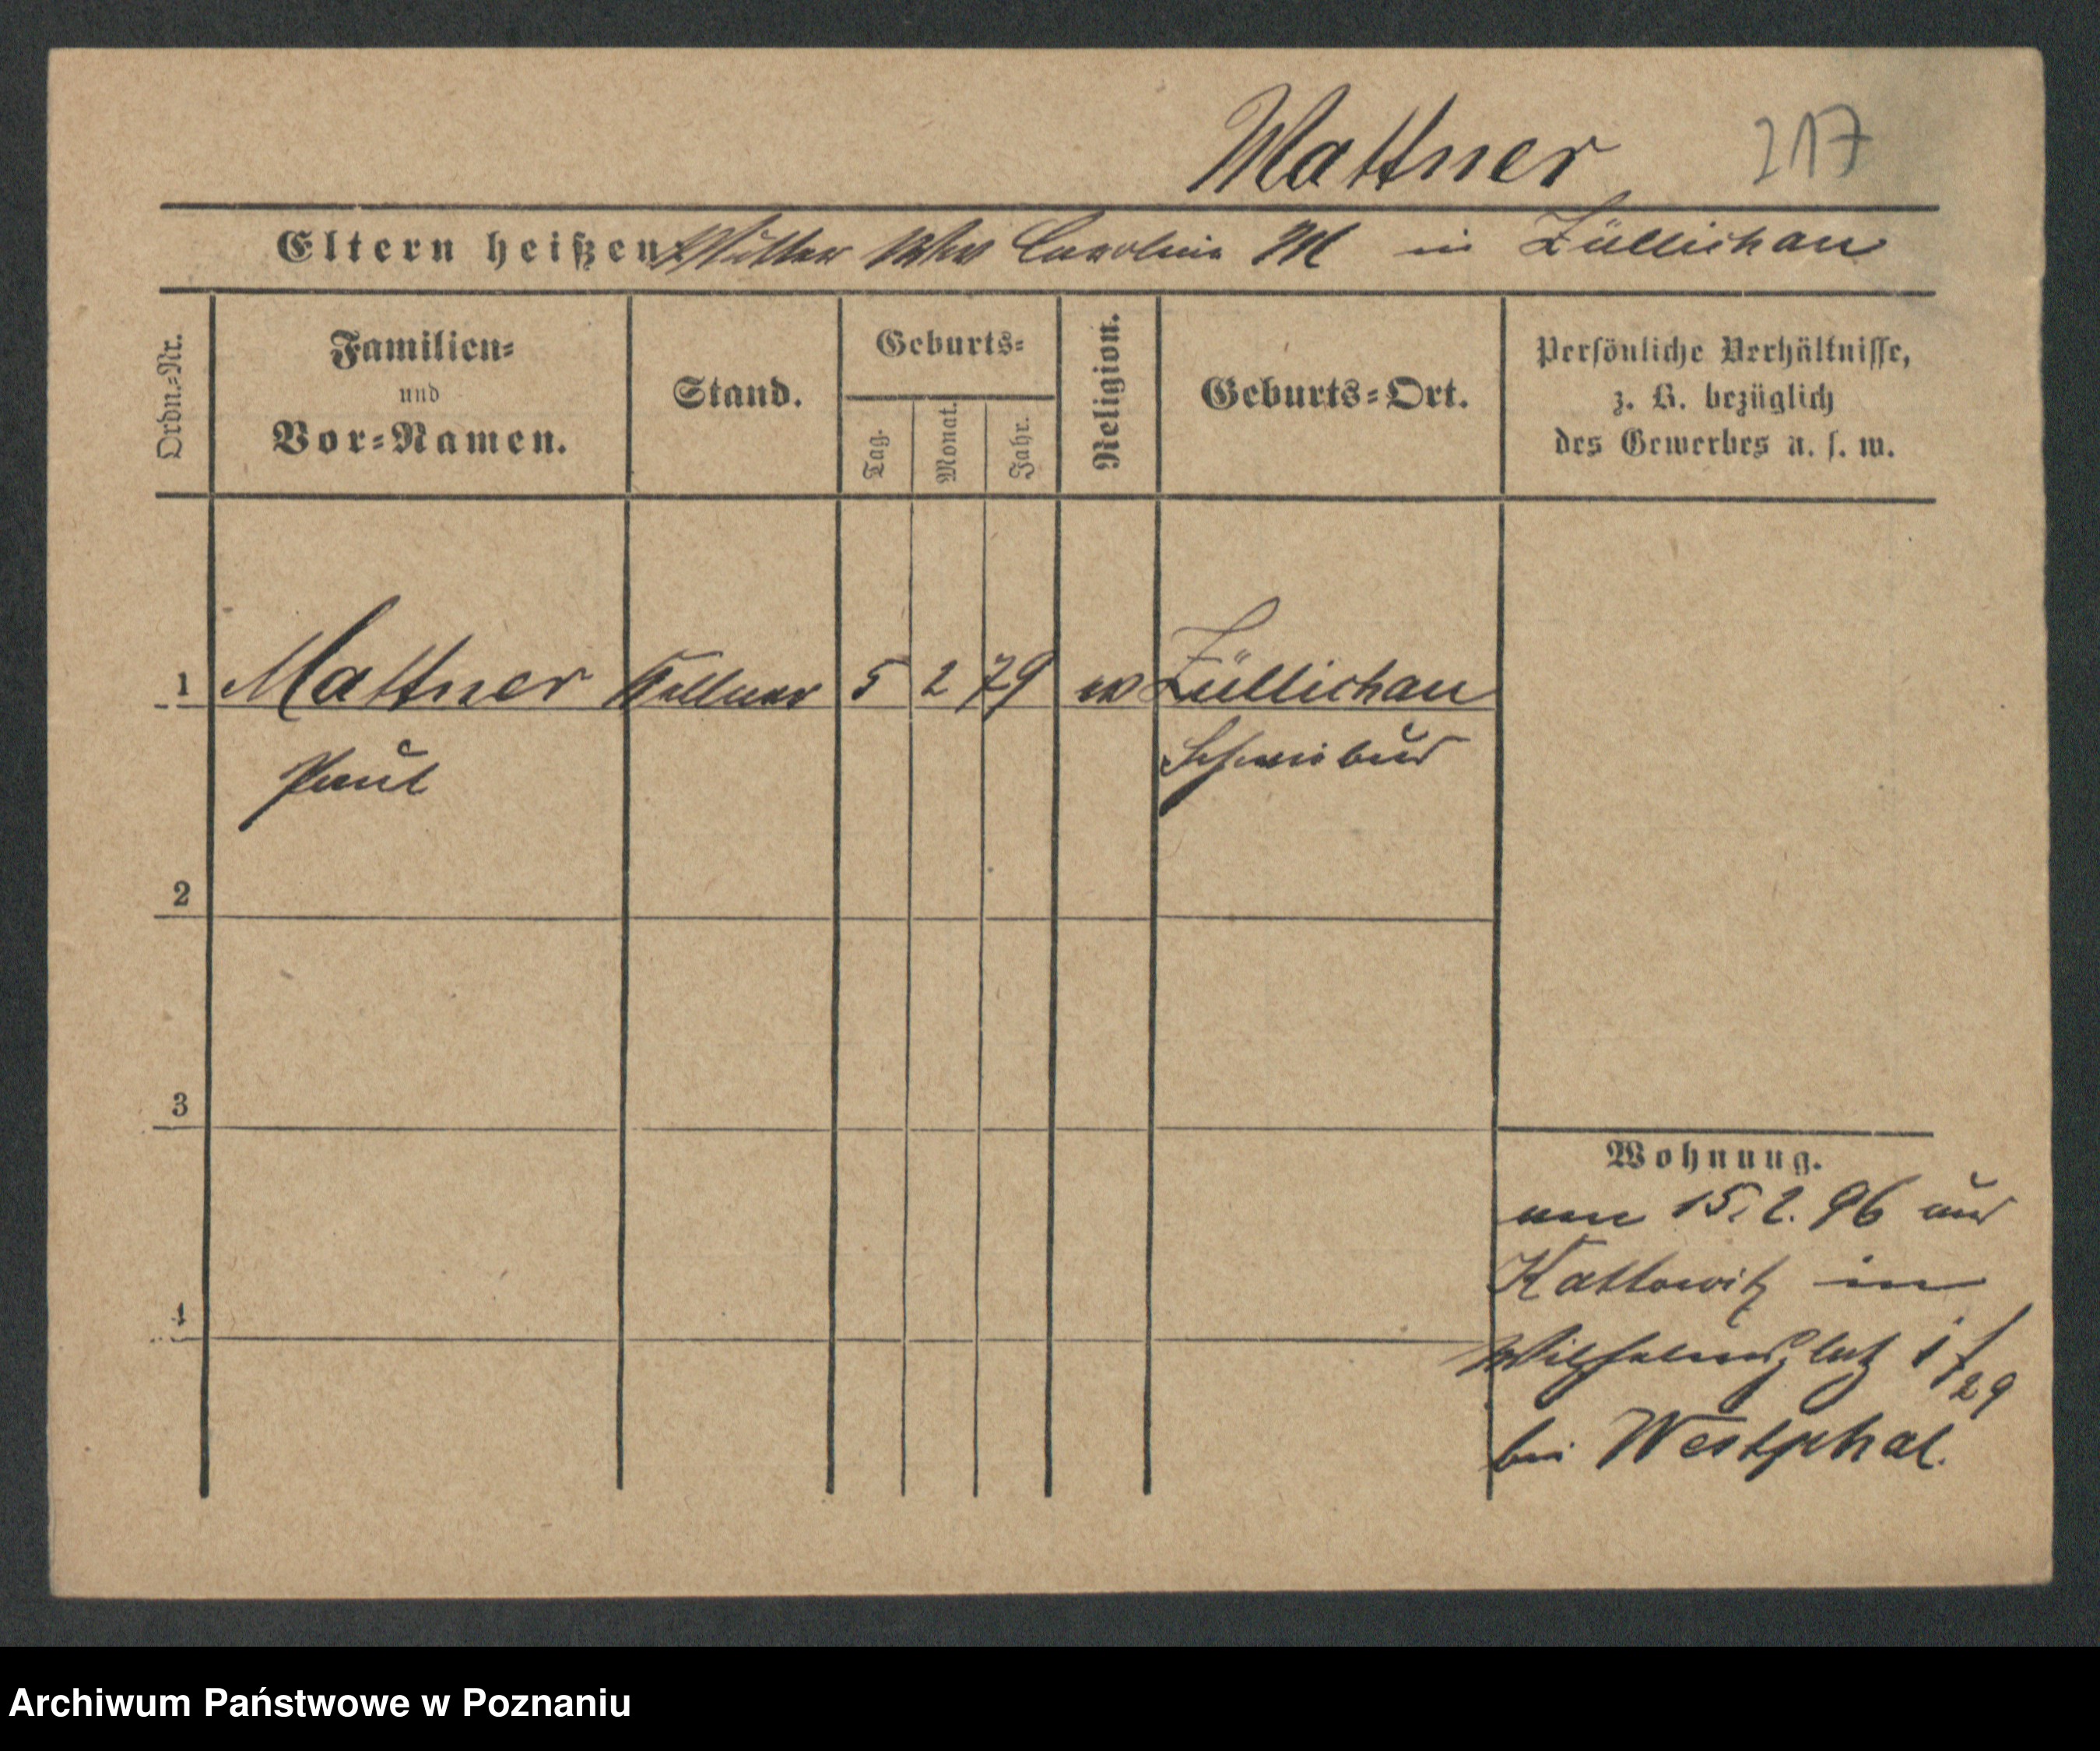 Mattner 217
Eltern heißen: Mutter Wwe Caroline M in Züllichau
Ordn.=Nr.
Familien=
und
Vor=Namen.
Stand.
Geburts=
Tag.
Monat.
Jahr.
Religion.
Geburts=Ort.
Persönliche Verhältnisse,
z. B. bezüglich
des Gewerbes u. s. w.
1 Mattner Kellner 5 2 79 ev Züllichau
Paul Schwiebus
2
3
4
Wohnung.
15. 2. 96 aus
Kattowitz in
Wilhelmsplatz 1
bei Westphal.
Archiwum Państwowe w Poznaniu